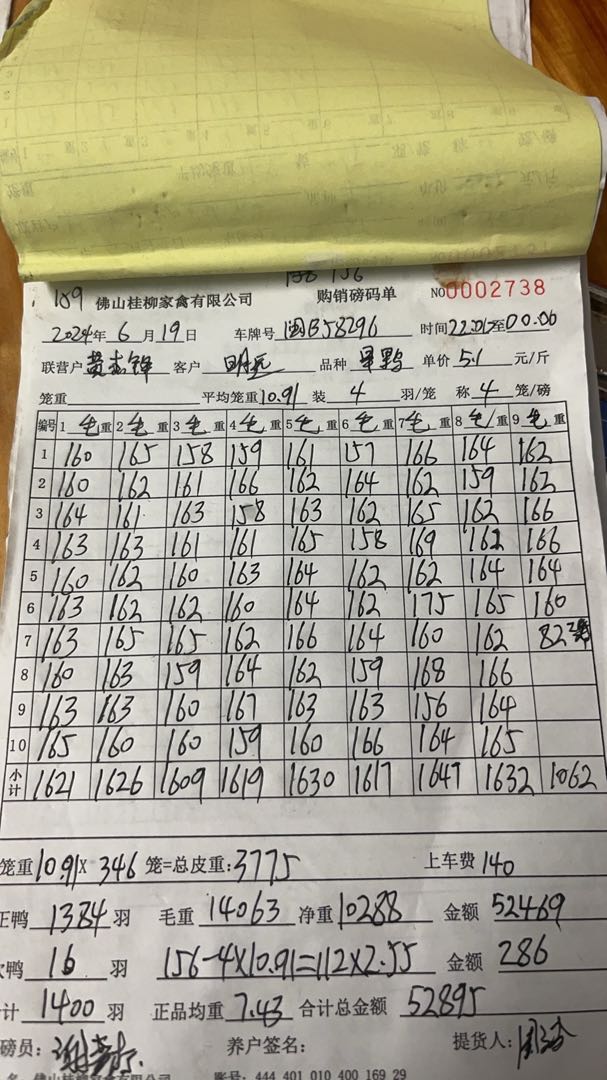 159 佛山桂柳家禽有限公司 购销磅码单 NO0002738
2024年6月19日 车牌号 闽B58296 时间22:01至00:00
联营户 黄志锋 客户 明远 品种 单价 5.1 元/斤
笼重 平均笼重10.91 装 4 羽/笼 称 4 笼/磅
编号 1 毛重 2 毛重 3 毛重 4 毛重 5 毛重 6 毛重 7 毛重 8 毛重 9 毛重
1 160 165 158 159 161 157 166 164 162
2 160 162 161 166 162 164 162 159 162
3 164 161 163 158 163 162 165 162 166
4 163 163 161 161 165 158 169 162 166
5 160 162 160 163 164 162 162 164 164
6 163 162 162 160 164 162 175 165 160
7 163 165 165 162 166 164 160 162 82
8 160 163 159 164 162 159 168 166
9 163 163 160 167 163 163 156 164
10 165 160 160 159 160 166 164 165
小计 1621 1626 1609 1619 1630 1617 1647 1632 1062
笼重10.91X 346 笼=总皮重:3775 上车费 140
正鸭 1384 羽 毛重 14063 净重 10288 金额 52469
鸭 16 羽 156-4X10.91=112X2.55 金额 286
计 1400 羽 正品均重 7.43 合计总金额 52895
磅员: 养户签名: 提货人:
佛山桂柳家禽有限公司 账号: 444 401 010 400 169 29